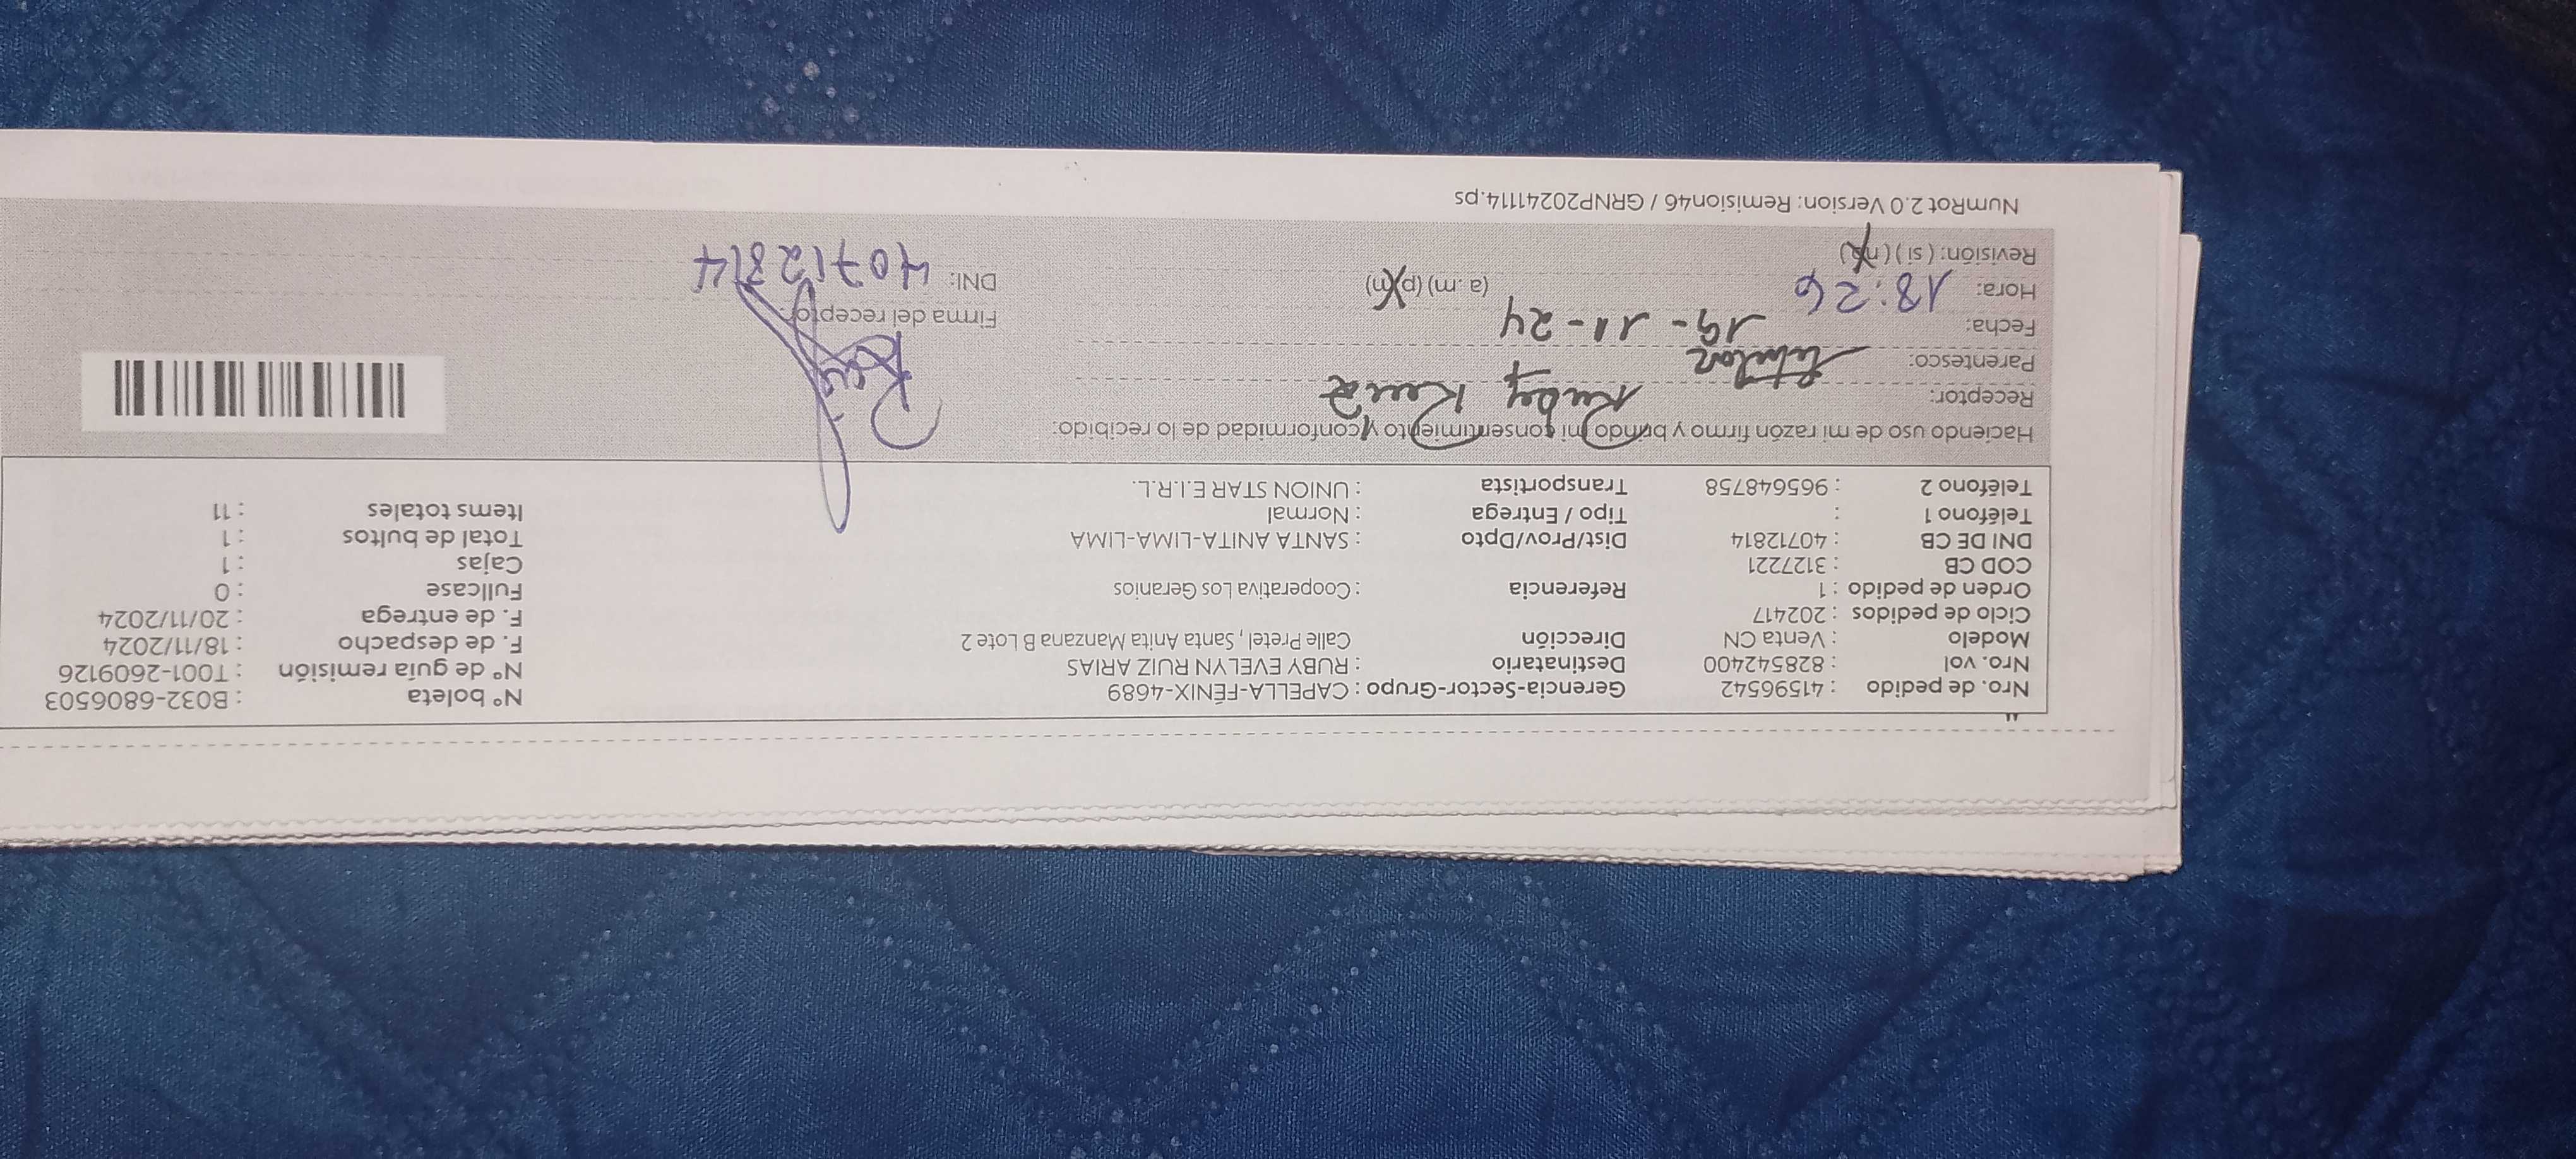 Nro. de pedido : 41596542 Gerencia-Sector-Grupo : CAPELLA-FÉNIX-4689 N° boleta : B032-6806503
Nro. vol : 828542400 Destinatario : RUBY EVELYN RUIZ ARIAS N° de guía remisión : T001-2609126
Modelo : Venta CN Dirección Calle Pretel , Santa Anita Manzana B Lote 2 F. de despacho : 18/11/2024
Ciclo de pedidos : 202417 F. de entrega : 20/11/2024
Orden de pedido : 1 Referencia : Cooperativa Los Geranios Fullcase : 0
COD CB : 3127221 Cajas : 1
DNI DE CB : 40712814 Dist/Prov/Dpto : SANTA ANITA-LIMA-LIMA Total de bultos : 1
Teléfono 1 : Tipo / Entrega : Normal Items totales : 11
Teléfono 2 : 965648758 Transportista : UNION STAR E.I.R.L.
Haciendo uso de mi razón firmo y brindo mi consentimiento y conformidad de lo recibido:
Receptor: Ruby Ruiz
Parentesco: titular
Fecha: 19-11-24 Firma del receptor:
Hora: 18:26 (a.m) (p.m) DNI: 40712814
Revisión: (si) (no)
NumRot 2.0 Version: Remision46 / GRNP20241114.ps